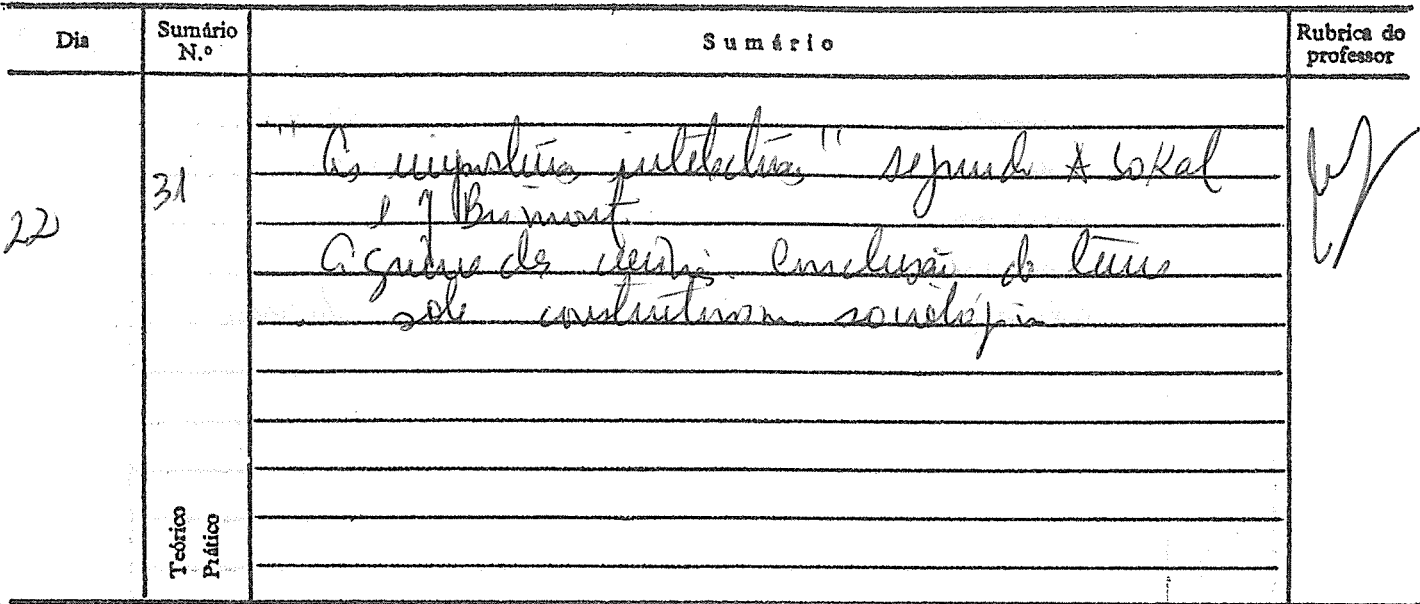 Dia
Sumário N.º
Sumário
Rubrica do professor
22
31
"As imposturas intelectuais" segundo A Sokal
e J Bricmont.
A guerra das ciências. Conclusão do tema
sobre construtivismo sociológico
Teórico
Prático